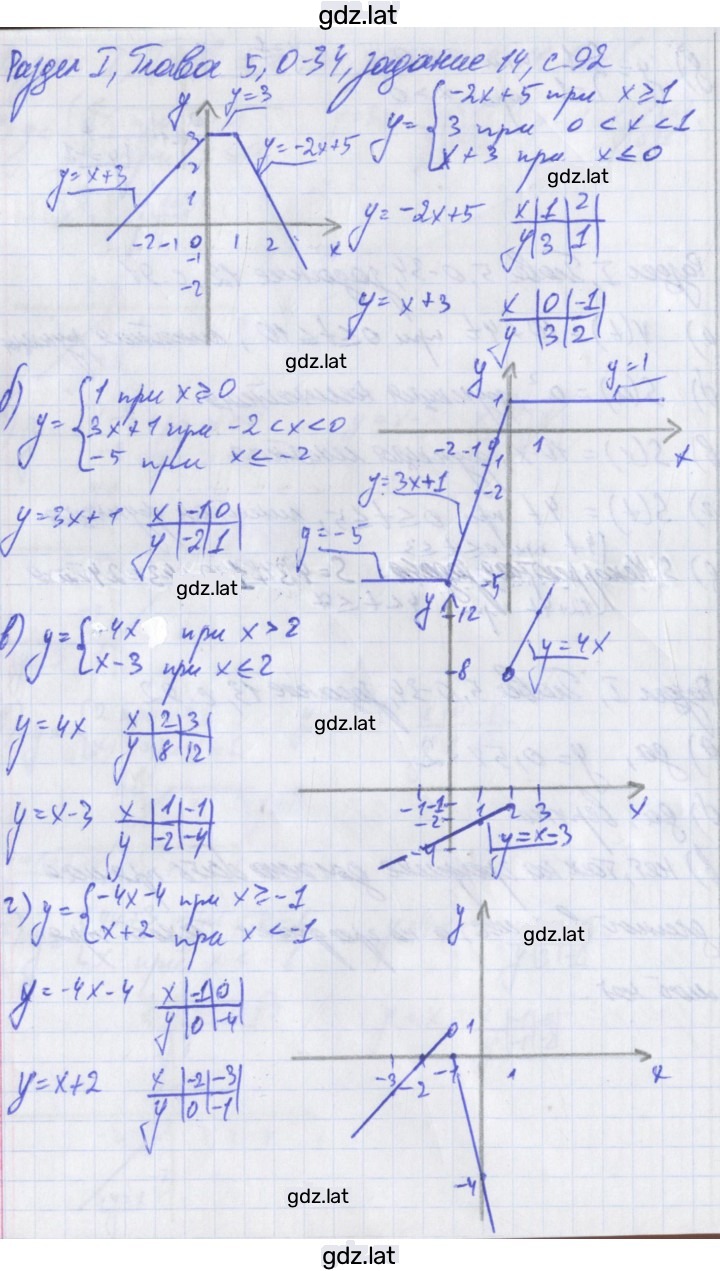 gdz.lat
Раздел I, Глава 5, О-34, задание 14, с 92
y y=3
3 y=-2x+5
y=x+3 2
1
-2 -1 0 1 2 x
-1
-2
y= { -2x+5 при x≥1
3 при 0<x<1
x+3 при x≤0
gdz.lat
y=-2x+5 x|1|2|
y|3|1|
y=x+3 x|0|-1|
y|3|2|
gdz.lat
б) y= { 1 при x≥0
3x+1 при -2<x<0
-5 при x≤-2
y=3x+1 x|-1|0|
y|-2|1|
gdz.lat
y y=1
1
-2 -1 0 1 x
-1
-2
y=3x+1
y=-5
-5
в) y= { 4x при x>2
x-3 при x≤2
y=4x x|2|3|
y|8|12|
gdz.lat
y=x-3 x|1|-1|
y|-2|-4|
y 12
8 y=4x
-1 -1 1 2 3 x
-2
-4 y=x-3
г) y= { -4x-4 при x≥-1
x+2 при x<-1
y=-4x-4 x|-1|0|
y|0|-4|
y=x+2 x|-2|-3|
y|0|-1|
y
gdz.lat
1
-3 -2 -1 1 x
-4
gdz.lat
gdz.lat